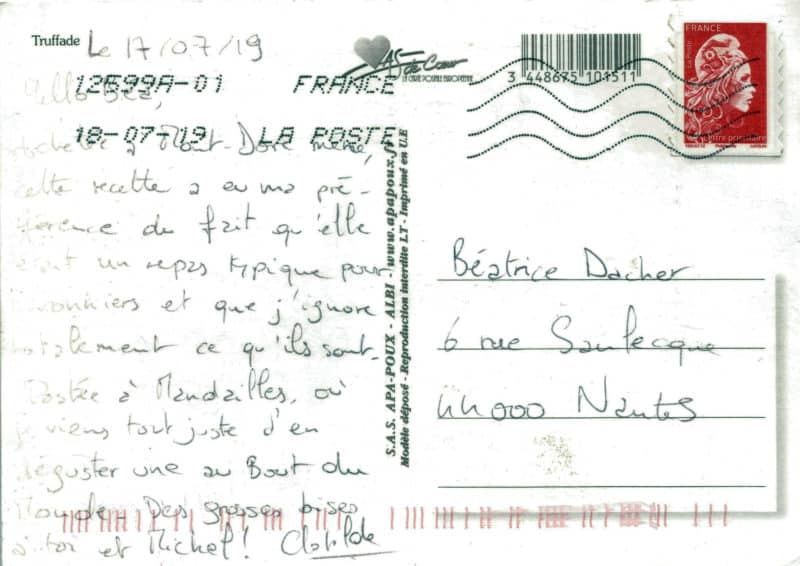 Truffade
Le 17/07/19
12599A-01 FRANCE
18-07-19 LA POSTE
AS de Cœur
LA CARTE POSTALE EUROPÉENNE
3 448675 101511
FRANCE
Lettre prioritaire
Béa,
à Mont-Dore même,
cette recette a eu ma pré-
férence du fait qu'elle
était un repas typique pour
et que j'ignore
totalement ce qu'ils sont.
Postée à Mandailles, où
je viens tout juste d'en
déguster une au Bout du
Monde. Des grosses bises
à toi et Michel! Clotilde
S.A.S. APA-POUX - ALBI - www.apapoux.fr
Modèle déposé - Reproduction interdite LT - Imprimé en U.E
Béatrice Dacher
6 rue Saulecque
44000 Nantes